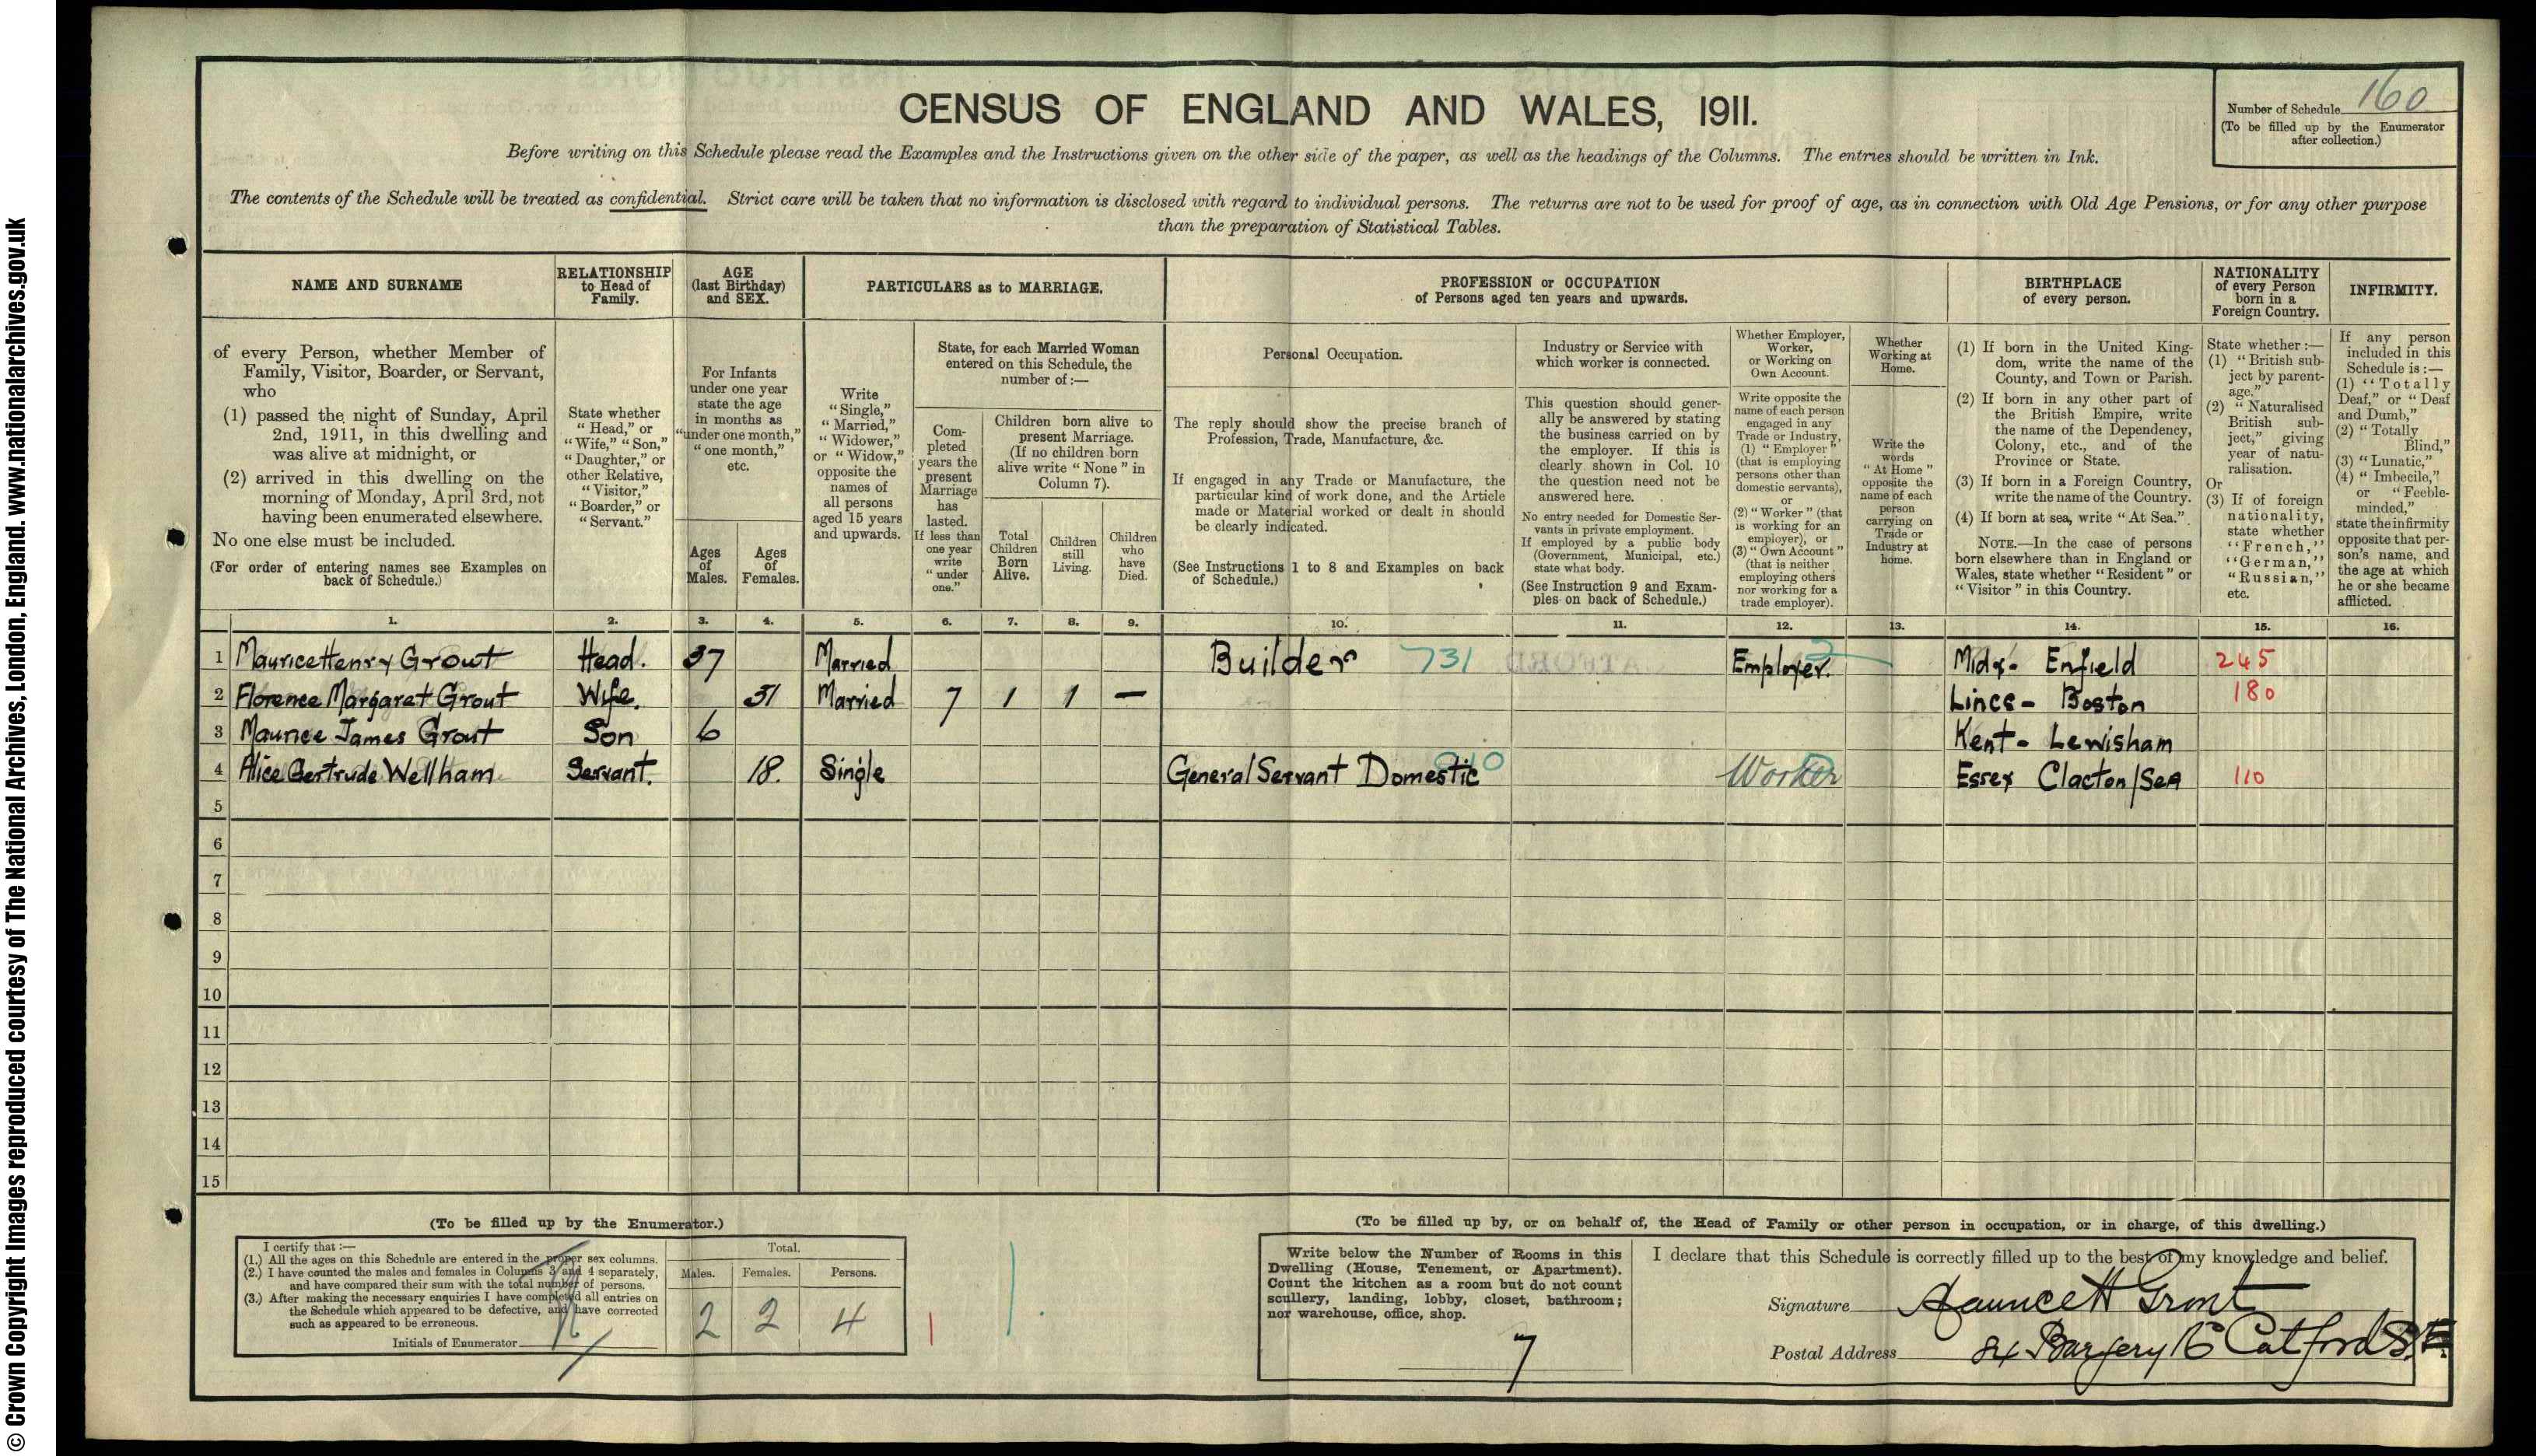 © Crown Copyright Images reproduced courtesy of The National Archives, London, England. www.nationalarchives.gov.uk
CENSUS OF ENGLAND AND WALES, 1911.
Number of Schedule 160
(To be filled up by the Enumerator
after collection.)
Before writing on this Schedule please read the Examples and the Instructions given on the other side of the paper, as well as the headings of the Columns. The entries should be written in Ink.
The contents of the Schedule will be treated as confidential. Strict care will be taken that no information is disclosed with regard to individual persons. The returns are not to be used for proof of age, as in connection with Old Age Pensions, or for any other purpose
than the preparation of Statistical Tables.
NAME AND SURNAME
of every Person, whether Member of
Family, Visitor, Boarder, or Servant,
who
(1) passed the night of Sunday, April
2nd, 1911, in this dwelling and
was alive at midnight, or
(2) arrived in this dwelling on the
morning of Monday, April 3rd, not
having been enumerated elsewhere.
No one else must be included.
(For order of entering names see Examples on
back of Schedule.)
RELATIONSHIP
to Head of
Family.
State whether
"Head," or
"Wife," "Son,"
"Daughter," or
other Relative,
"Visitor,"
"Boarder," or
"Servant."
AGE
(last Birthday)
and SEX.
For Infants
under one year
state the age
in months as
"under one month,"
"one month,"
etc.
Ages
of
Males.
Ages
of
Females.
PARTICULARS as to MARRIAGE.
Write
"Single,"
"Married,"
"Widower,"
or "Widow,"
opposite the
names of
all persons
aged 15 years
and upwards.
State, for each Married Woman
entered on this Schedule, the
number of:—
Com-
pleted
years the
present
Marriage
has
lasted.
If less than
one year
write
"under
one."
Children born alive to
present Marriage.
(If no children born
alive write "None" in
Column 7).
Total
Children
Born
Alive.
Children
still
Living.
Children
who
have
Died.
PROFESSION or OCCUPATION
of Persons aged ten years and upwards.
Personal Occupation.
The reply should show the precise branch of
Profession, Trade, Manufacture, &c.
If engaged in any Trade or Manufacture, the
particular kind of work done, and the Article
made or Material worked or dealt in should
be clearly indicated.
(See Instructions 1 to 8 and Examples on back
of Schedule.)
Industry or Service with
which worker is connected.
This question should gener-
ally be answered by stating
the business carried on by
the employer. If this is
clearly shown in Col. 10
the question need not be
answered here.
No entry needed for Domestic Ser-
vants in private employment.
If employed by a public body
(Government, Municipal, etc.)
state what body.
(See Instruction 9 and Exam-
ples on back of Schedule.)
Whether Employer,
Worker,
or Working on
Own Account.
Write opposite the
name of each person
engaged in any
Trade or Industry,
(1) "Employer"
(that is employing
persons other than
domestic servants),
or
(2) "Worker" (that
is working for an
employer), or
(3) "Own Account"
(that is neither
employing others
nor working for a
trade employer).
Whether
Working at
Home.
Write the
words
"At Home"
opposite the
name of each
person
carrying on
Trade or
Industry at
home.
BIRTHPLACE
of every person.
(1) If born in the United King-
dom, write the name of the
County, and Town or Parish.
(2) If born in any other part of
the British Empire, write
the name of the Dependency,
Colony, etc., and of the
Province or State.
(3) If born in a Foreign Country,
write the name of the Country.
(4) If born at sea, write "At Sea."
NOTE.—In the case of persons
born elsewhere than in England or
Wales, state whether "Resident" or
"Visitor" in this Country.
NATIONALITY
of every Person
born in a
Foreign Country.
State whether:—
(1) "British sub-
ject by parent-
age."
(2) "Naturalised
British sub-
ject," giving
year of natu-
ralisation.
Or
(3) If of foreign
nationality,
state whether
"French,"
"German,"
"Russian,"
etc.
INFIRMITY.
If any person
included in this
Schedule is:—
(1) "Totally
Deaf," or "Deaf
and Dumb,"
(2) "Totally
Blind,"
(3) "Lunatic,"
(4) "Imbecile,"
or "Feeble-
minded,"
state the infirmity
opposite that per-
son's name, and
the age at which
he or she became
afflicted.
1. 2. 3. 4. 5. 6. 7. 8. 9. 10. 11. 12. 13. 14. 15. 16.
1 Maurice Henry Grout Head. 37 Married Builder 731 Employer. Midx- Enfield 245
2 Florence Margaret Grout Wife. 31 Married 7 1 1 — Lincs- Boston 180
3 Maurice James Grout Son 6 Kent- Lewisham
4 Alice Gertrude Wellham Servant. 18. Single General Servant Domestic Worker Essex Clacton/Sea 110
5
6
7
8
9
10
11
12
13
14
15
(To be filled up by the Enumerator.)
I certify that:—
(1.) All the ages on this Schedule are entered in the proper sex columns.
(2.) I have counted the males and females in Columns 3 and 4 separately,
and have compared their sum with the total number of persons.
(3.) After making the necessary enquiries I have completed all entries on
the Schedule which appeared to be defective, and have corrected
such as appeared to be erroneous.
Initials of Enumerator
Total.
Males. Females. Persons.
2 2 4
(To be filled up by, or on behalf of, the Head of Family or other person in occupation, or in charge, of this dwelling.)
Write below the Number of Rooms in this
Dwelling (House, Tenement, or Apartment).
Count the kitchen as a room but do not count
scullery, landing, lobby, closet, bathroom;
nor warehouse, office, shop.
7
I declare that this Schedule is correctly filled up to the best of my knowledge and belief.
Signature Maurice H Grout
Postal Address Bargery Rd Catford S.E.